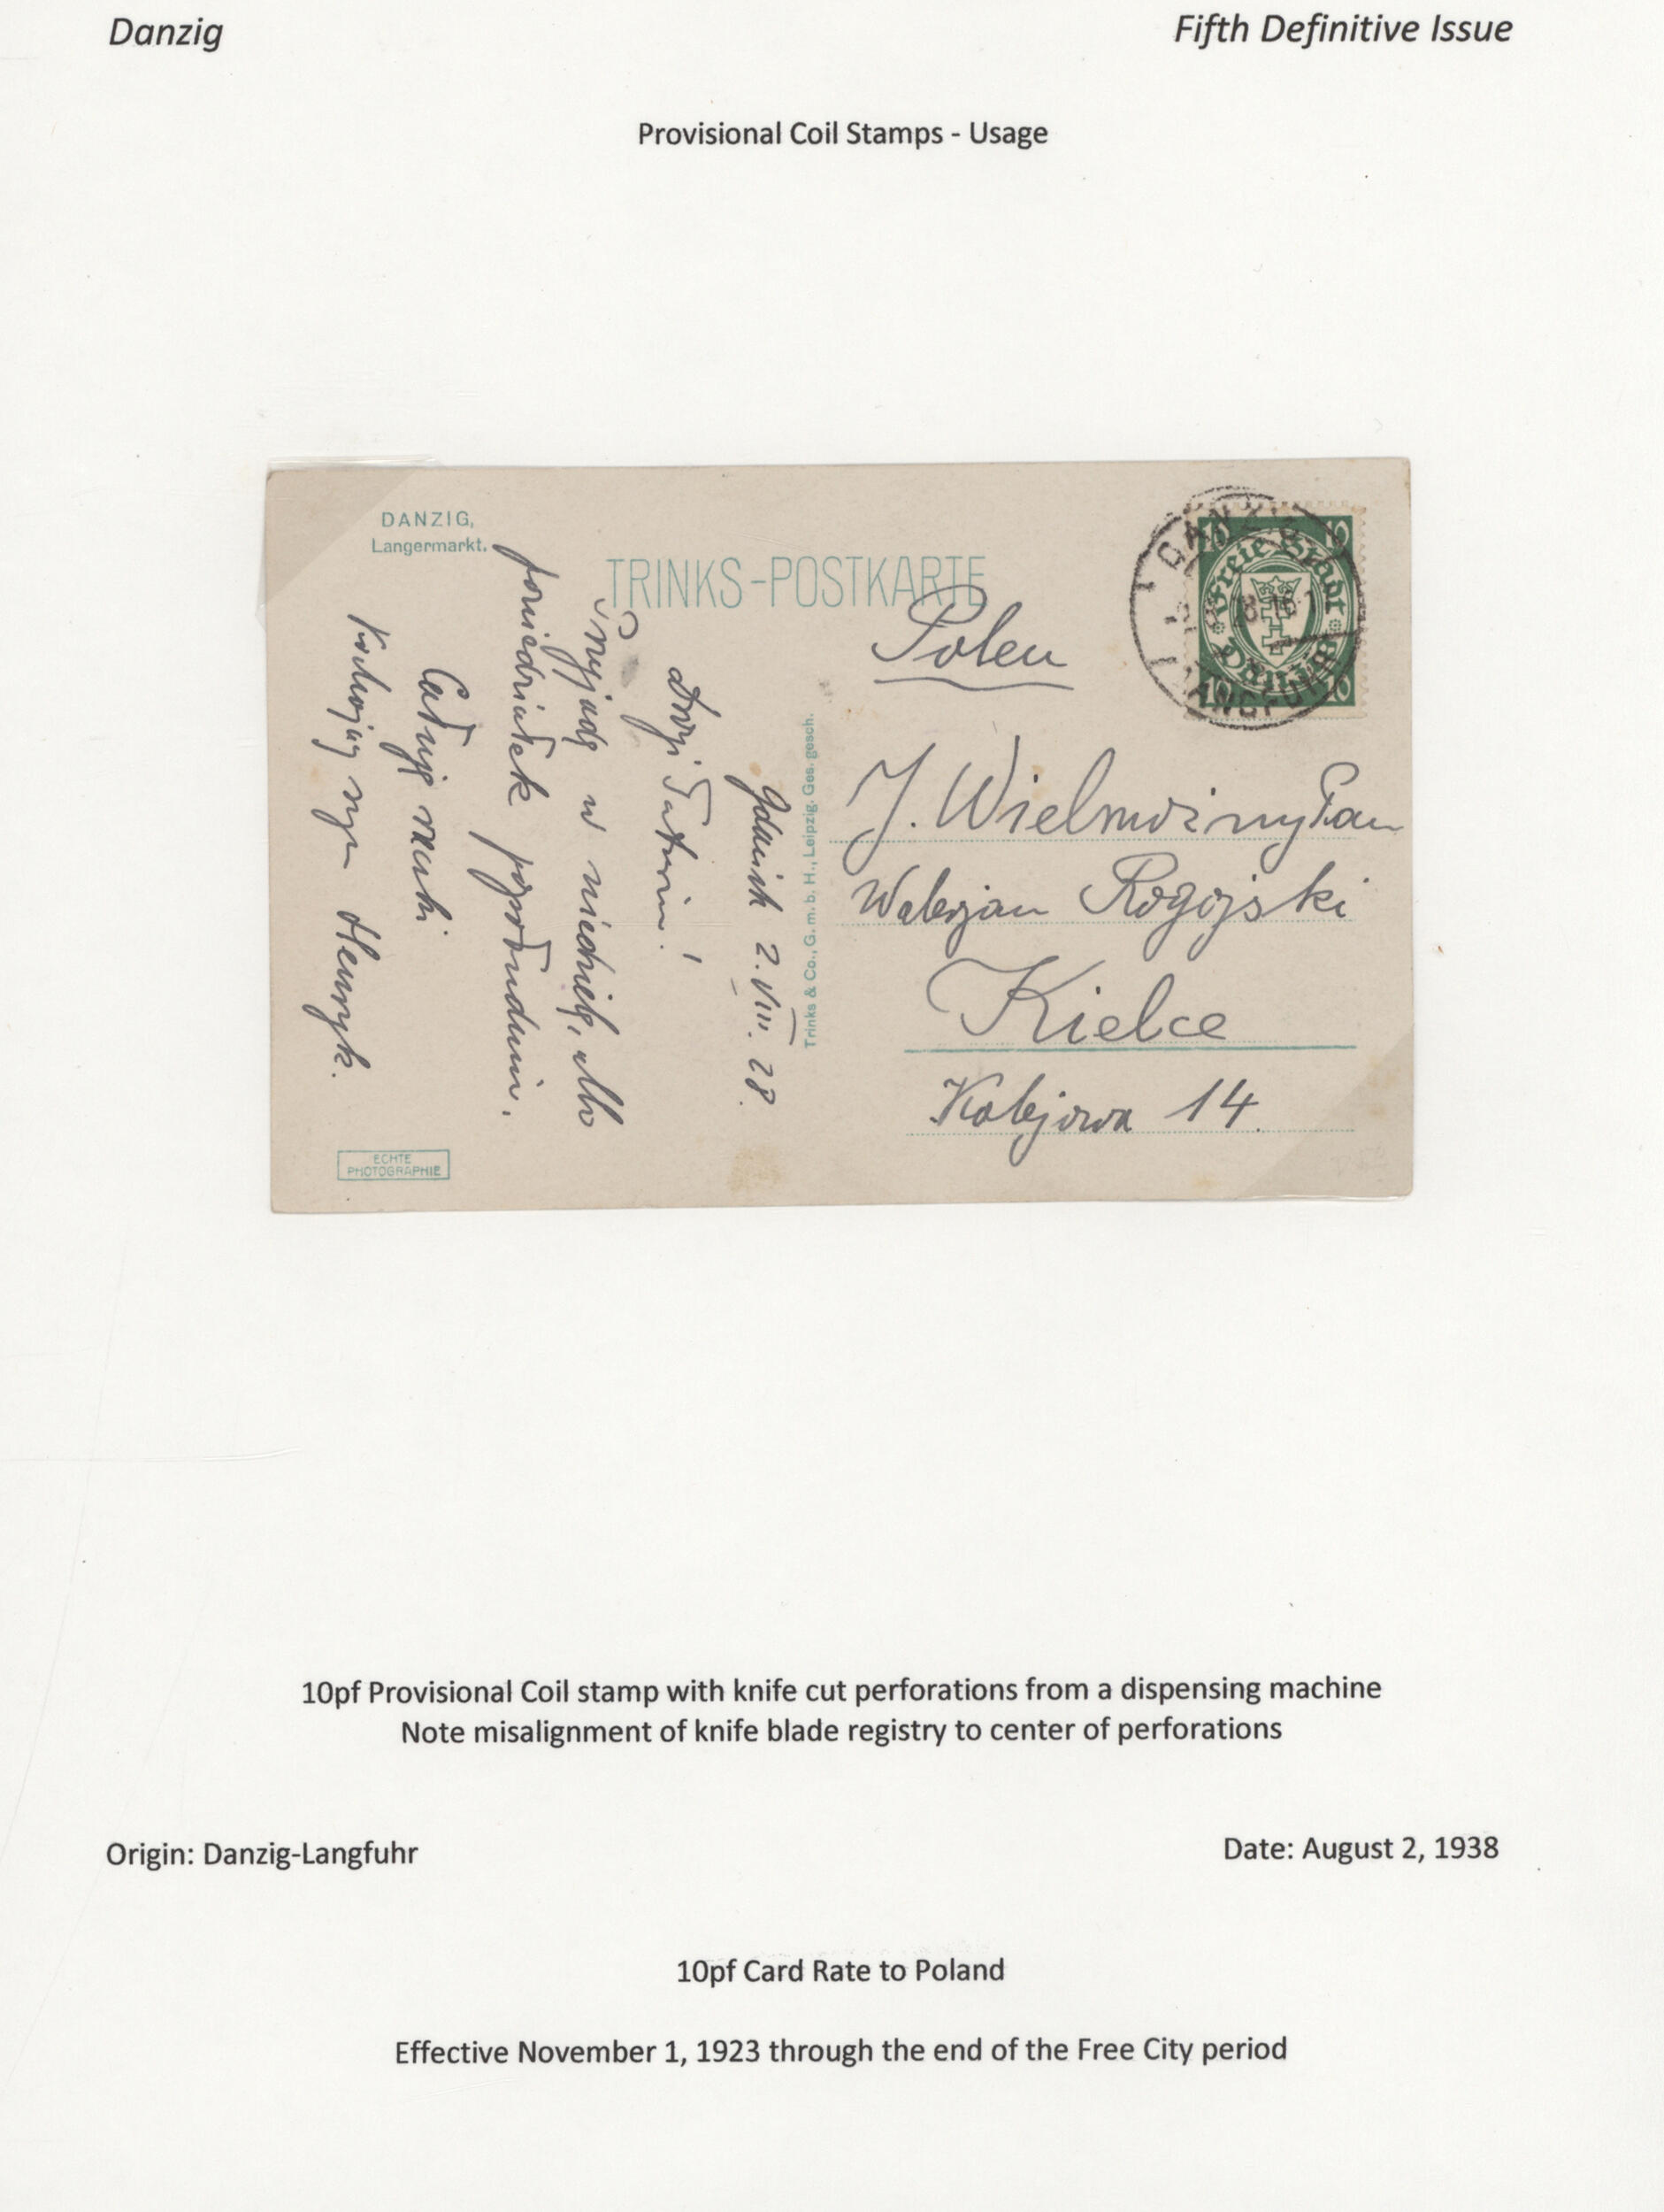 Danzig
Fifth Definitive Issue
Provisional Coil Stamps - Usage
DANZIG,
Langermarkt.
TRINKS-POSTKARTE
Polen
10 10
Freie Stadt
Danzig
10 10
DANZIG
LANGFUHR
J. Wielmożny Pan
Walerjan Rogojski
Kielce
Kolejowa 14.
Trinks & Co., G. m. b. H., Leipzig. Ges. gesch.
Gdańsk 2.VIII.28.
Drogi Tatusiu!
Przyjadę w niedzielę, albo
poniedziałek popołudniu.
Całuję rączki
Kochający syn Henryk.
ECHTE
PHOTOGRAPHIE
10pf Provisional Coil stamp with knife cut perforations from a dispensing machine
Note misalignment of knife blade registry to center of perforations
Origin: Danzig-Langfuhr
Date: August 2, 1938
10pf Card Rate to Poland
Effective November 1, 1923 through the end of the Free City period